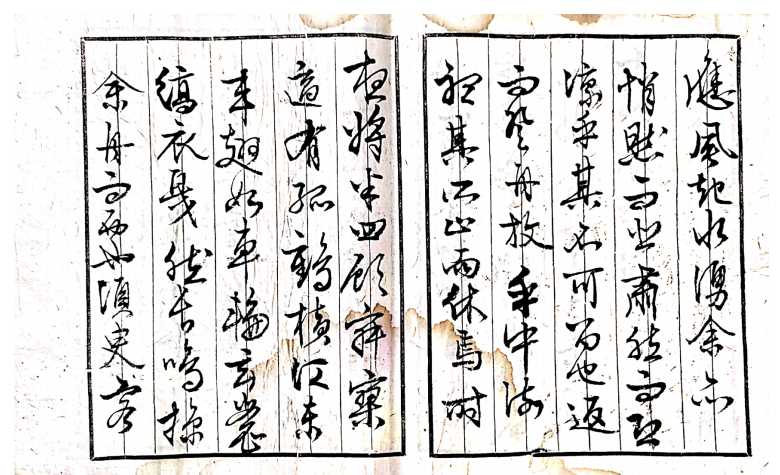 應風起水湧余亦
悄然而悲肅然而恐
凜乎其不可留也返
而登舟放乎中流
聽其所止而休焉時
夜將半四顧寂寥
適有孤鶴橫江東
來翅如車輪玄裳
縞衣戛然長鳴掠
余舟而西也須臾客